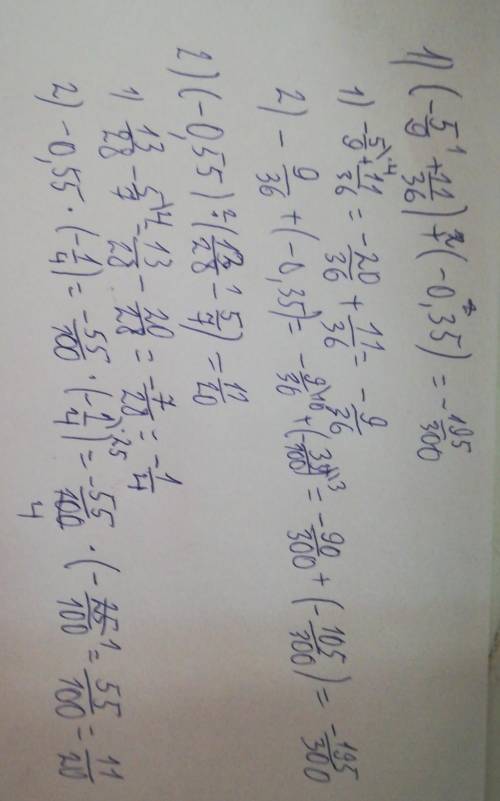 1) (-5/9 + 11/36) + (-0,35) = -195/300
1) -5/9 \4 + 11/36 = -20/36 + 11/36 = -9/36
2) -9/36 + (-0,35) = -9/36 \10 + (-35/100 \3) = -90/300 + (-105/300) = -195/300
2) (-0,55) · (13/28 - 5/7) = 11/20
1) 13/28 - 5/7 \4 = 13/28 - 20/28 = -7/28 = -1/4
2) -0,55 · (-1/4) = -55/100 · (-1/4) \25 = -55/100 · (-25/100 = 55/100 = 11/20
4